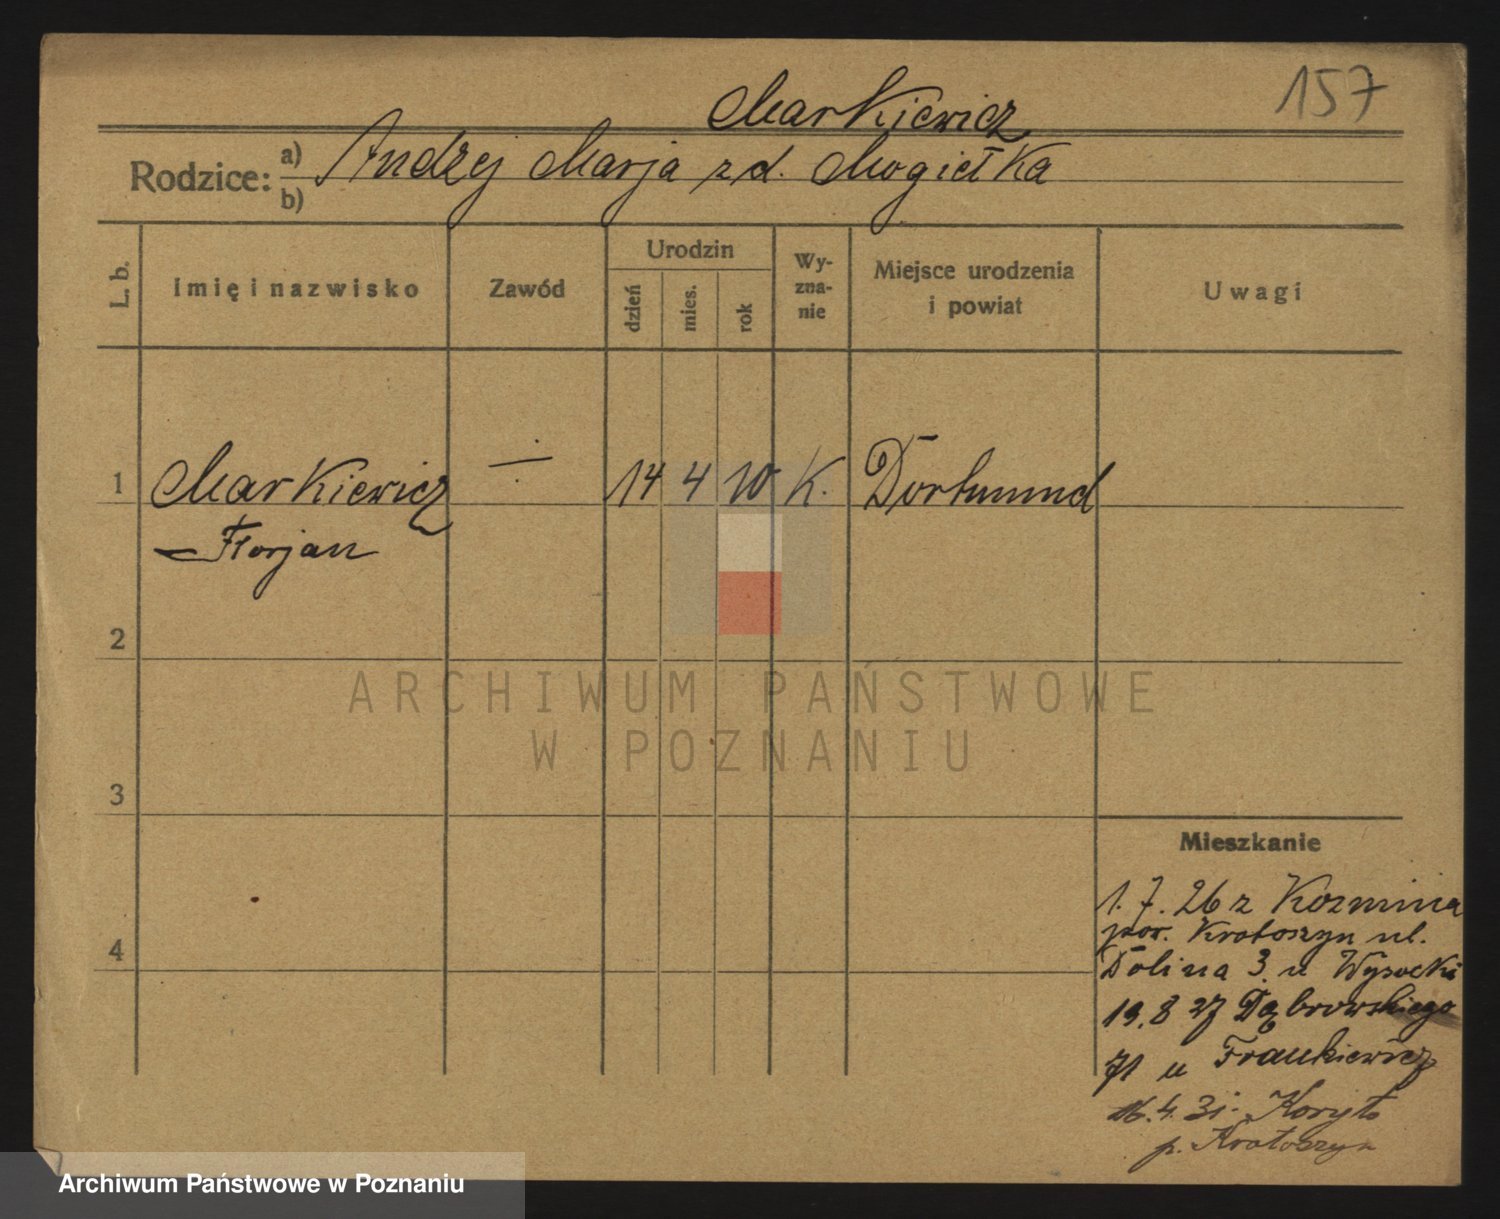 157
Markiewicz
Rodzice: a) Andrzej Marja z d. Mogiełka
b)
L. b.
Imię i nazwisko
Zawód
Urodzin
dzień
mies.
rok
Wy-
zna-
nie
Miejsce urodzenia
i powiat
Uwagi
1 Markiewicz 14 4 10 K. Dortmund
Florjan
2
3
4
Mieszkanie
1.7.26 z Kozmina
pow. Krotoszyn ul.
Dolina 3 u Wysocki
19.8 27 Dąbrowskiego
71 u Frankiewicz
16.4.31. Koryto
p. Krotoszyn
ARCHIWUM PAŃSTWOWE
W POZNANIU
Archiwum Państwowe w Poznaniu